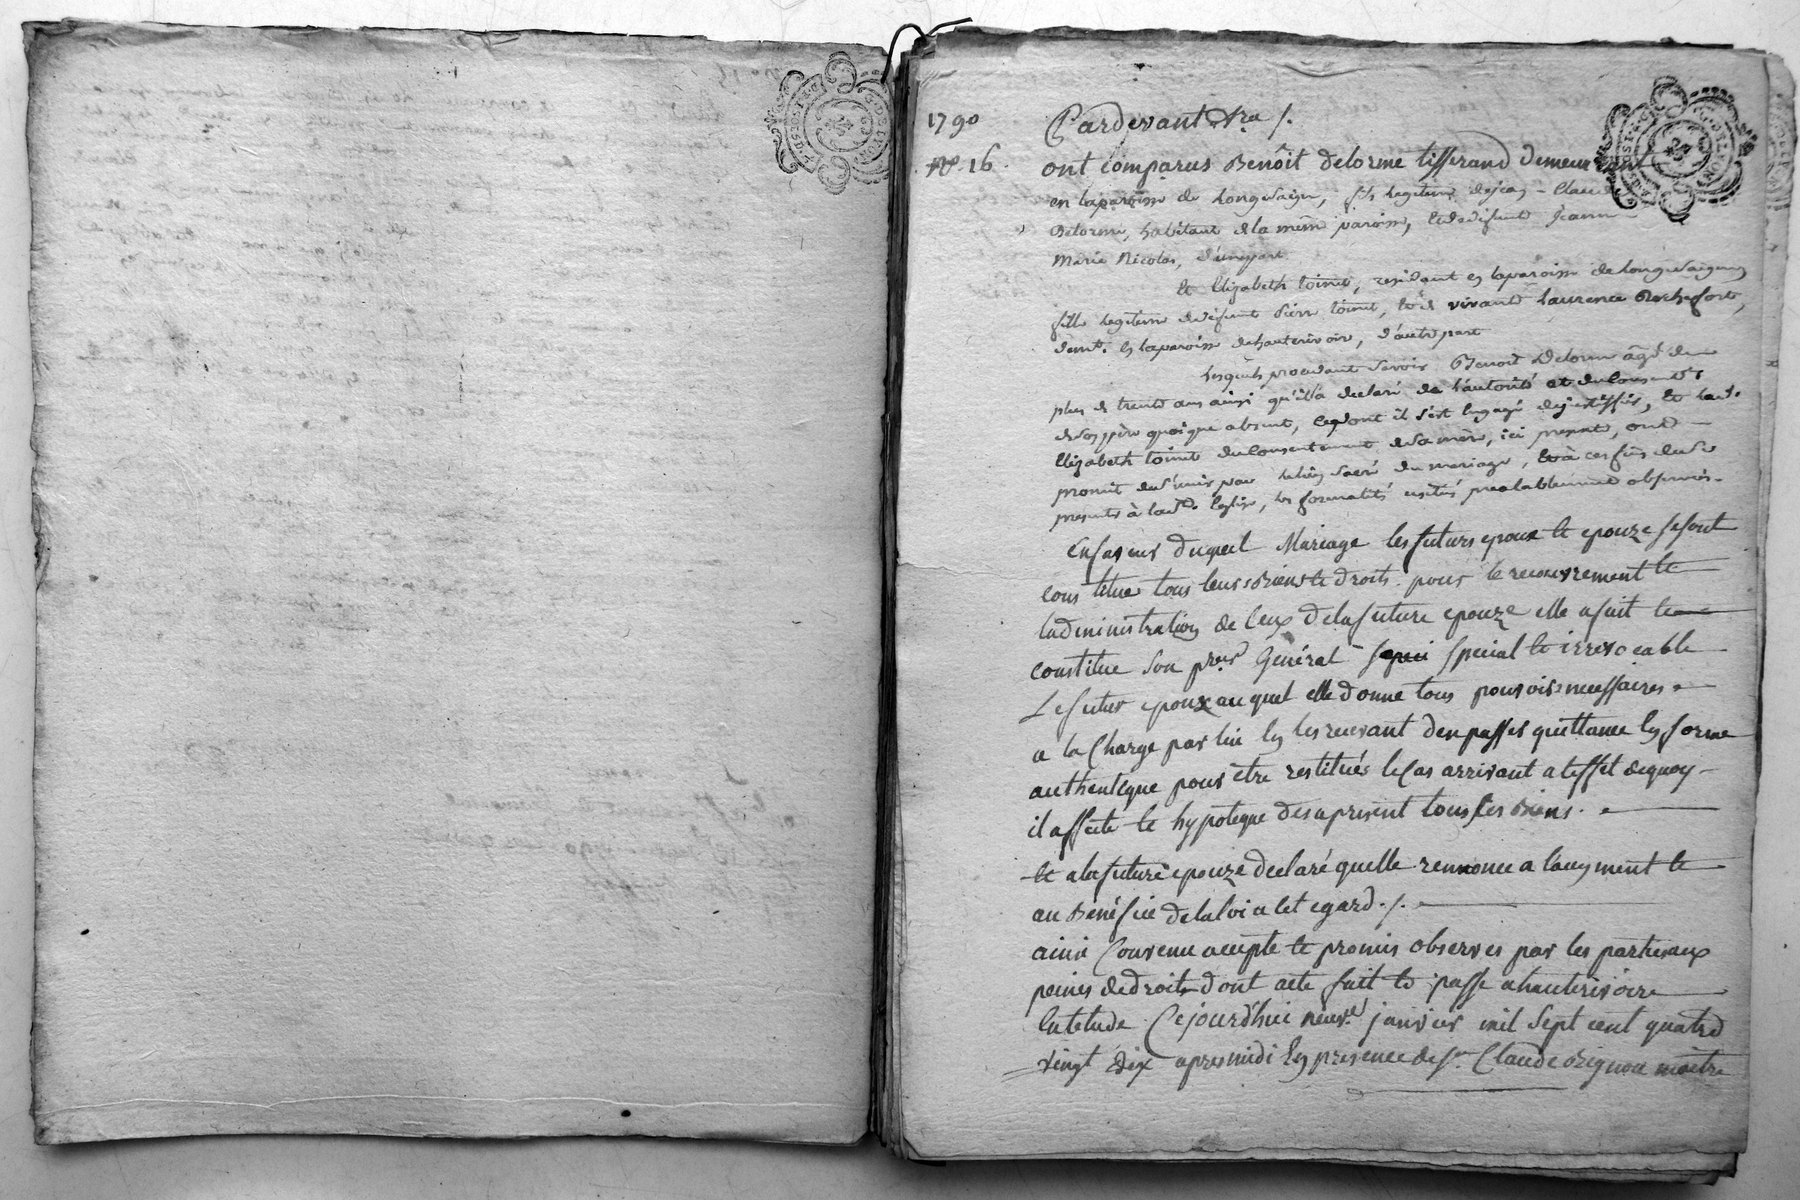 1790
no. 16.
Pardevant &ra /.
ont comparus Benôit delorme tisserand demeurant
en la paroisse de Longessaigne, fils legitime de jean-Claude
Delorme, habitant de la même paroisse, et de defunte Jeanne
Marie Nicolas, d'une part
et Elizabeth toinet, residant en la paroisse de longessaigne
fille legitime de défunt Pierre toinet, et de vivante Laurence Rochefort,
demte. en la paroisse de hauterivoire, d'autre part
Lesquels procedant savoir Benoit Delorme âgé de
plus de trente ans ainsi qu'il a declaré de l'autorité et du consentt.
de son père quoique absent, dont il s'est engagé de justiffier, et lad.
Elizabeth toinet du consentement de sa mère, ici presente, ont
promit de s'unir par le lien sacré du mariage, et à ces fins de se
presenter à lad. Eglise, les formalités usitées prealablement observées.
En faveur duquel Mariage les futurs epoux et epouze se sont
constitué tous leurs Biens et droits. pour le recouvrement et
ladministration de ceux de la future epouze elle a fait et
constitué son procr. Général special et irrevocable
Le futur epoux auquel elle donne tous pouvoirs necessaires
a la Charge par lui en les recevant den passer quittance en forme
authentique pour etre restitués le Cas arrivant a leffet dequoy
il affecte et hypoteque des a present tous ses Biens.
et a la future epouze declaré quelle rennonce a laugment et
au Bénéfice de la loi a cet egard ./.
ainsi Convenu accepté et promis observer par les parties aux
peines de droit dont acte fait et passé a hauterivoire
En letude Cejourdhui neuve. janvier mil sept cent quatre
vingt dix apres midi En presence de sr. Claude orignon maitre